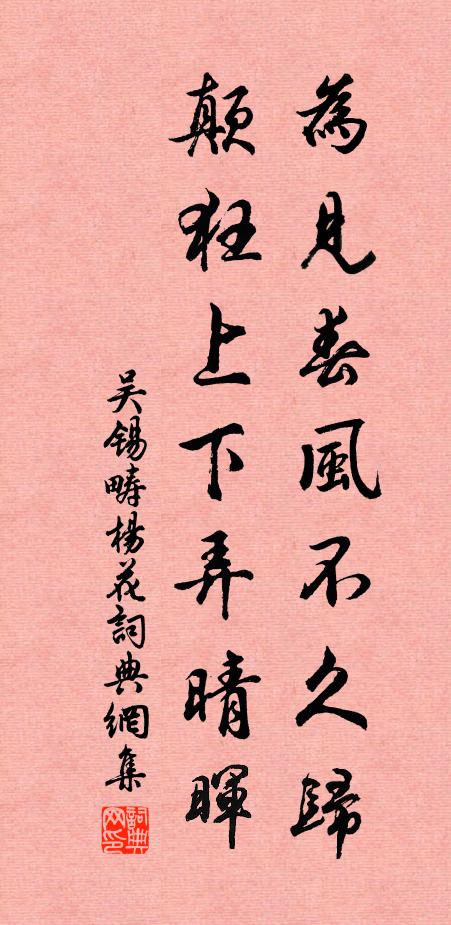 為見春風不久歸
顛狂上下弄晴暉
吴錫疇楊花詞典網集
詞典网印